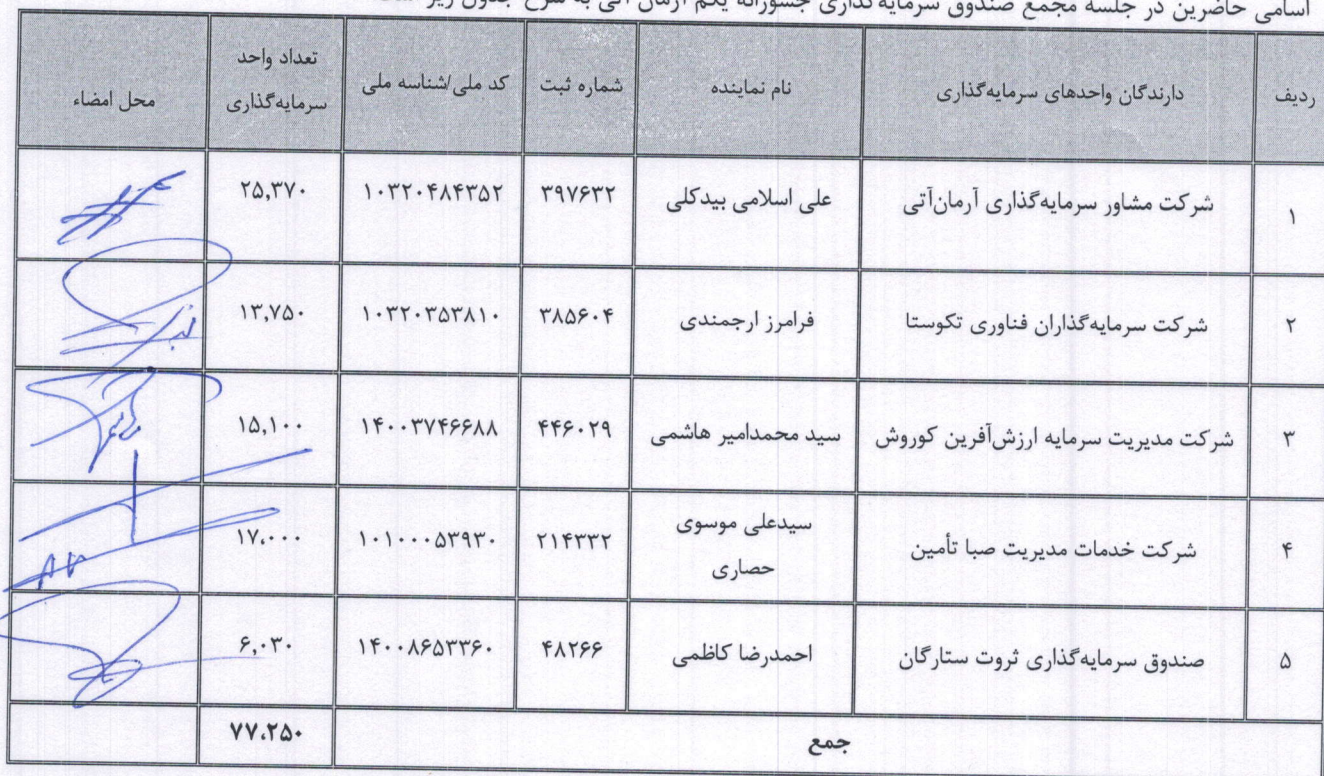 اسامی حاضرین در جلسه مجمع صندوق سرمایه‌گذاری جسورانه یکم آرمان آتی به شرح جدول زیر
ردیف	دارندگان واحدهای سرمایه‌گذاری	نام نماینده	شماره ثبت	کد ملی/شناسه ملی	تعداد واحد سرمایه‌گذاری	محل امضاء
۱	شرکت مشاور سرمایه‌گذاری آرمان‌آتی	علی اسلامی بیدکلی	۳۹۷۶۳۲	۱۰۳۲۰۴۸۴۳۵۲	۲۵,۳۷۰
۲	شرکت سرمایه‌گذاران فناوری تکوستا	فرامرز ارجمندی	۳۸۵۶۰۴	۱۰۳۲۰۳۵۳۸۱۰	۱۳,۷۵۰
۳	شرکت مدیریت سرمایه ارزش‌آفرین کوروش	سید محمدامیر هاشمی	۴۴۶۰۲۹	۱۴۰۰۳۷۴۶۶۸۸	۱۵,۱۰۰
۴	شرکت خدمات مدیریت صبا تأمین	سیدعلی موسوی حصاری	۲۱۴۳۳۲	۱۰۱۰۰۰۵۳۹۳۰	۱۷،۰۰۰
۵	صندوق سرمایه‌گذاری ثروت ستارگان	احمدرضا کاظمی	۴۸۲۶۶	۱۴۰۰۸۶۵۳۳۶۰	۶,۰۳۰
جمع	۷۷،۲۵۰